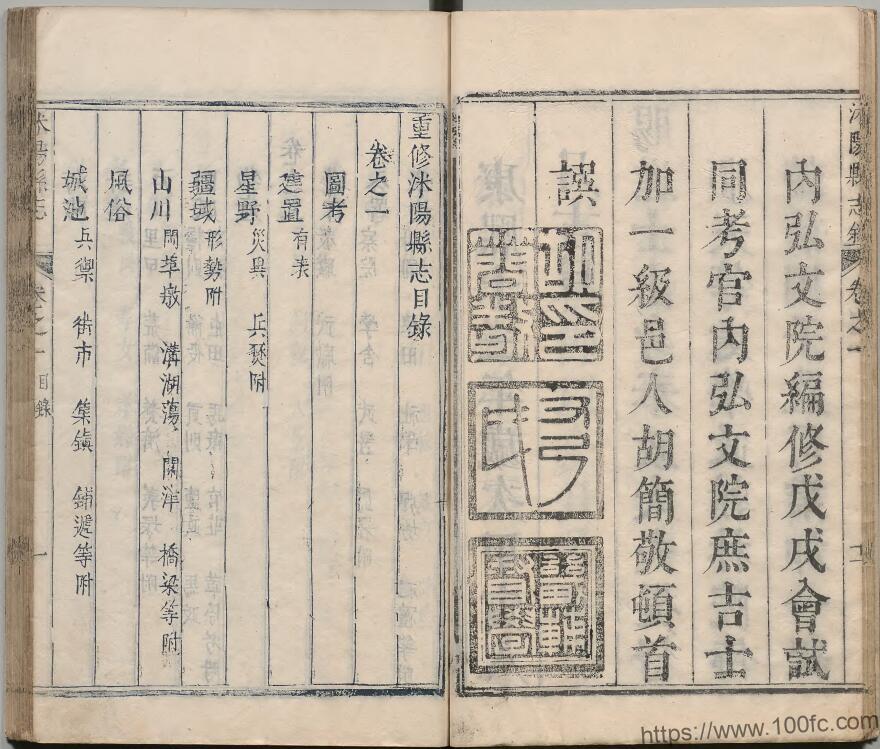 內弘文院編修戊戌會試
同考官內弘文院庶吉士
加一級邑人胡簡敬頓首
譔
沭陽縣志
卷之一
重修沭陽縣志目錄
卷之一
圖考
建置 有表
星野 災異 兵燹附
疆域 形勢附
山川 溝湖蕩 關津 橋梁等附
風俗
城池 兵禦 街市 集鎮 鋪遞等附
沭陽縣志 卷之一 目錄 一
https://www.100fc.com